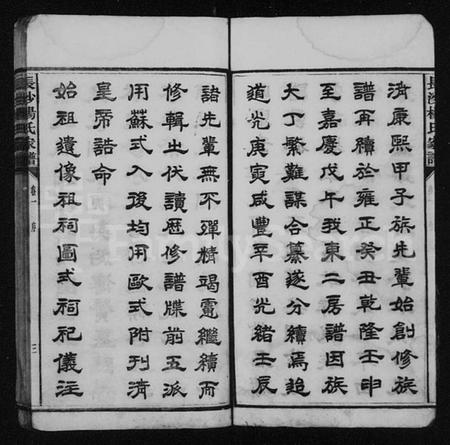 清康熙甲子族先輩始創修族
譜再續於雍正癸丑乾隆壬申
至嘉慶戊午我東二房譜因族
大丁繁難謀合纂遂分續焉迨
道光庚寅咸豐辛酉光緒壬辰
諸先輩無不殫精竭慮繼續而
修輯出伏讀歷修譜牒前五派
用蘇式入後均用歐式附刊清
皇帝誥命
始祖遺像祖祠圖式祠祀儀注
長沙楊氏家譜
卷一
序
三